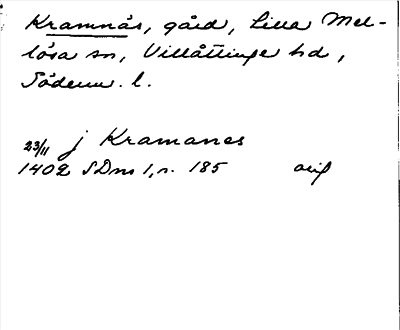 Kramnäs, gård, Lilla Mel-
lösa sn, Villåttinge hd,
Söderm. l.
23/11 j Kramanes
1402 SDns 1, n. 185 orig